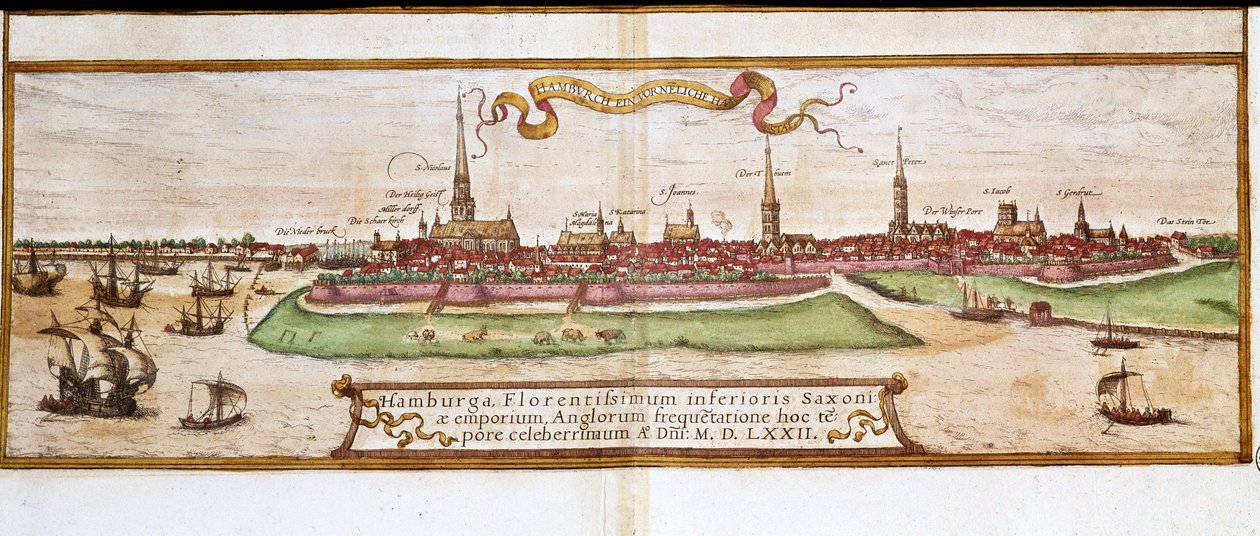 HAMBVRCH EIN VORNELICHE HA
STAT
S. Nicolaus
Der Heilig Geist
Miller dorff
Die Schaer kirch
Die Nieder bruck
S. Maria
Magdalena
S Katarina
S. Joannes.
Der Thuem
Sanct Peter
Der Winser Pore
S. Iacob
S. Gerdrut
Das Stein Tor
Hamburga, Florentiſsimum inferioris Saxoni:
æ emporium, Anglorum frequẽtatione hoc tẽ:
pore celeberrimum Aº. Dñi: M. D. LXXII.